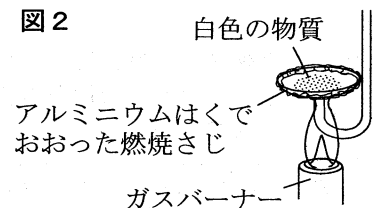 図2
白色の物質
アルミニウムはくで
おおった燃焼さじ
ガスバーナー